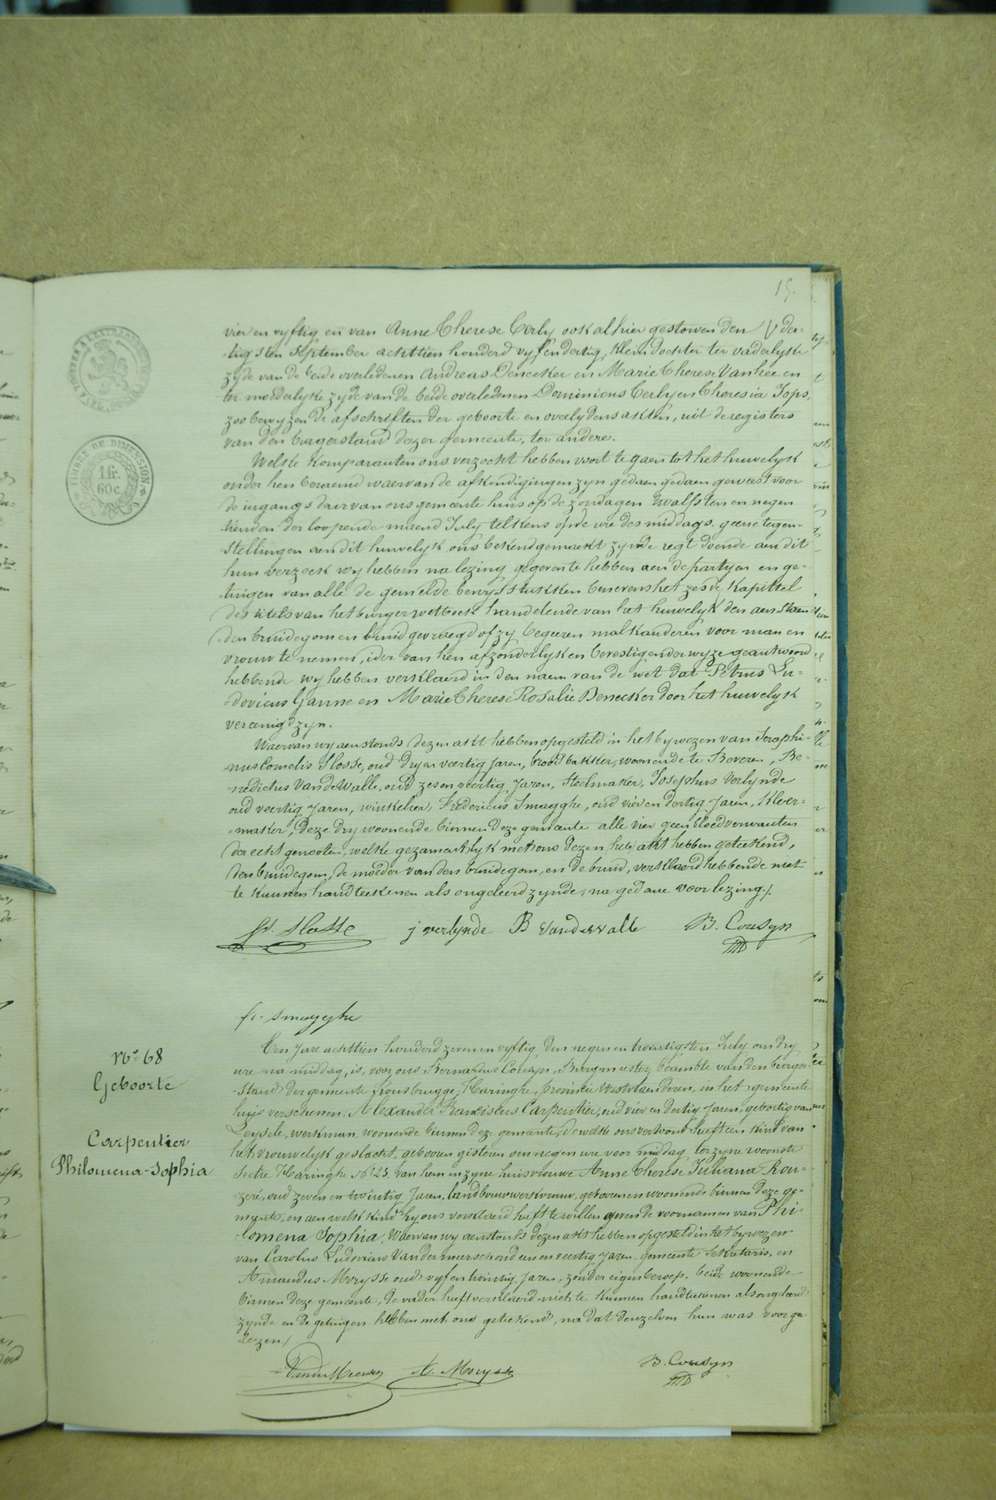 15.
vier en vyftig en van Anne Therese Cerly ook alhier gestorven den der-
tigsten September achttien honderd vyf en dertig, klein dochter ter vaderlyke
zyde van de beide overledenen Andreas Deneeker en Marie Therese Vanhee en
ter moederlyke zyde van de beide overledenen Dominicus Cerly en Theresia Jops,
zoo bewyzen de afschriften der geboorte en overlydens akten, uit de registers
van den burgerstand dezer gemeente, ten andere.
Welke komparanten ons verzocht hebben voort te gaen tot het huwelyk
onder hen beraemd waervan de afkondigingen zyn gedaen gedaen geweest voor
de ingangs daer van ons gemeente huis op de zondagen twalfsten en negen
tienden der loopende maend July telkens op de ure des middags, geene tegen-
stellingen aen dit huwelyk ons bekend gemaekt zynde regt doende aen dit
hun verzoek wy hebben na lezing gegeven te hebben aen de partyen en ge-
tuigen van alle de gemelde bewyst stukken benevens het zesde kapittel
des titels van het burger wetboek handelende van het huwelyk den aenstaen
den bruidegom en bruid gevraegd of zy begeeren malkanderen voor man en
vrouw te nemen, ider van hen afzonderlyk en bevestigender wyze geantwoord
hebbende wy hebben verklaerd in den naem van de wet dat Petrus Lu-
dovicus Ganne en Marie Therese Rosalie Deneeker door het huwelyk
vereenigd zyn.
Waervan wy aenstonds dezen akt hebben opgesteld in het bywezen van Seraphi-
nus Cornelis Slosse, oud dry en veertig jaren, brood bakker, woonende te Beveren, Be-
nedictus Vandewalle, oud zes en veertig jaren, stoelmaker, Josephus Verlynde
oud veertig jaren, winkelier, Fredericus Smagghe, oud vier en dertig jaren, kleer-
maker, deze dry woonende binnen deze gemeente alle vier geen bloedverwanten
der echtgenooten, welke gezamentlyk met ons dezen akt hebben geteekend,
den bruidegom, de moeder van den bruidegom, en de bruid, verklaerd hebbende niet
te kunnen handteekenen als ongeleerd zynde, na gedane voorlezing.
St. Slosse j verlynde B Vandewalle B. Cousyn
fr. Smagghe
No. 68
Geboorte
Carpentier
Philomena-Sophia
Ten jare achttien honderd zeven en vyftig, den negen en twintigsten July om dry
ure na middag, is voor ons Bernardus Cousyn, Burgmeester, beambte van den burger
stand der gemeente Rousbrugge-Haringhe, provincie Westvlaenderen, in het gemeente
huis verschenen, Alexander Franciscus Carpentier, oud vier en dertig jaren, geboortig van
Leysele, werkman, woonende binnen deze gemeente, dewelke ons vertoont heeft een kind van
het vrouwelyk geslacht, geboren gisteren om negen ure voor middag ter zyne woonste
Sectie Haringhe, No. 23, van hem en zyne huisvrouwe Anne Therese Juliana Rou-
zere, oud zeven en twintig jaren, landbouwwerkvrouw, geboren en woonende binnen deze ge-
meente, en aen welk kind hy ons verklaerd heeft te willen geven de voornamen van Phi-
lomena Sophia, Waervan wy aenstonds dezen akt hebben opgesteld in het bywezen
van Carolus Ludovicus Vandermeersch oud een en veertig jaren, gemeente sekretaris, en
Armandus Morysse oud vyf en twintig jaren, zonder eigen beroep, beide woonende
binnen deze gemeente, De vader heeft verklaerd niet te kunnen handteekenen als ongeleerd
zynde en de getuigen hebben met ons geteekend, na dat denzelven hun was voorge-
lezen.
Vander Meersch A. Morysse B. Cousyn
TIMBRE DE DIMENSION
1 fr.
60 c.